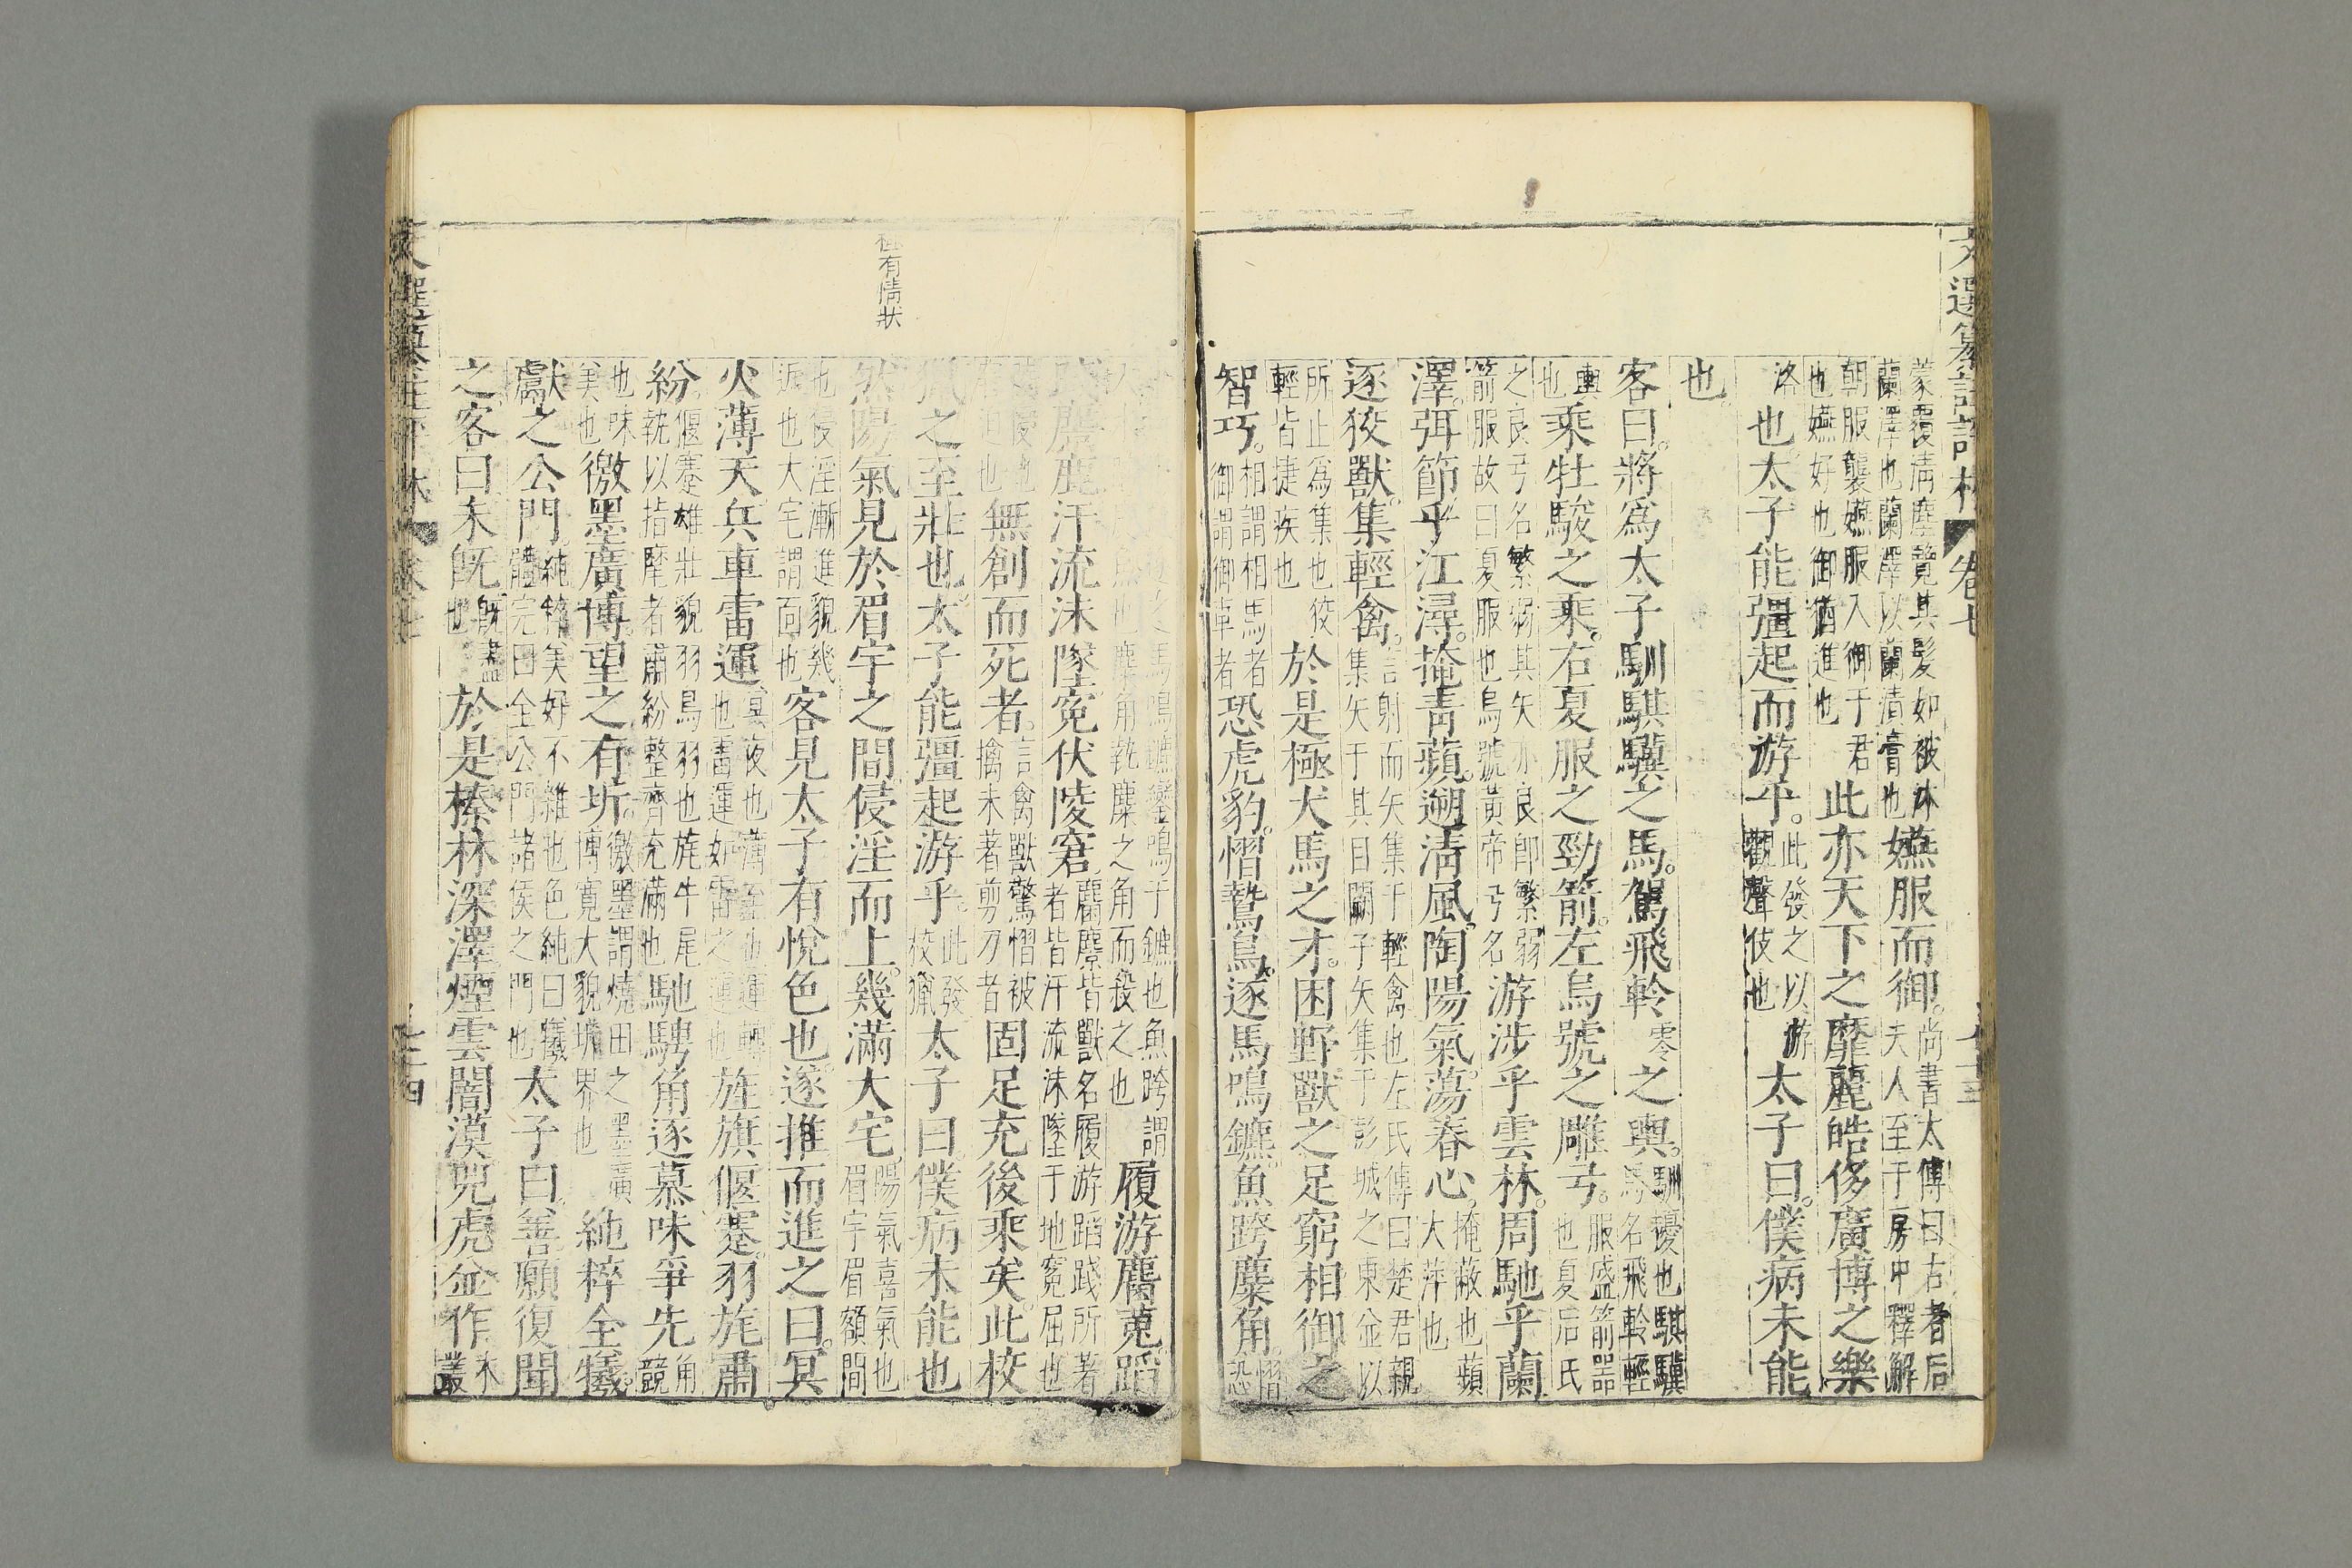 蒙覆淸塵覽其髮如被沐
蘭澤也蘭澤以蘭漬膏也
嬿服而御。
尚書太傳曰古者后
夫人至于房中釋解
朝服襲嬿服入御于君
也嬿好也御猶進也
此亦天下之靡麗皓侈廣博之樂
也太子能彊起而游乎。
此發之以游
觀聲伎也
太子曰。僕病未能
也。
客曰。將爲太子馴騏驥之馬。駕飛軨
零
之輿。
馴擾也騏驥
馬名飛軨輕
輿
也
乘牡駿之乘。右夏服之勁箭。左烏號之雕弓。
服盛箭器
也夏后氏
之良弓名繁弱其矢亦良卽繁弱
箭服故曰夏服也烏號黃帝弓名
游涉乎雲林。周馳乎蘭
澤。弭節乎江潯。掩靑蘋。遡淸風。陶陽氣。蕩春心。
掩蔽也蘋
大萍也
逐狡獸。集輕禽。
言射而矢集于輕禽也左氏傳曰楚君親
集矢于其目闘子矢集于彭城之東並以
所止爲集也狡
輕皆捷疾也
於是極犬馬之才。困野獸之足。窮相御之
智巧。
相謂相馬者
御謂御車者
恐虎豹。慴鷙鳥。逐馬鳴鑣。魚跨麋角。
慴
恐
馬鳴鑣鑾鳴于鑣也魚跨謂
麋角執麋之角而殺之也
履游麕莵。蹈
踐麖鹿。汗流沫墜。寃伏陵窘。
麕麖皆獸名履游蹈踐所著
者皆汗流沫墜于地寃屈也
無創而死者。
言禽獸驚慴被
擒未著剪刃者
固足充後乘矣。此校
獵之至壯也。太子能彊起游乎。
此發
校獵
太子曰。僕病未能也
然陽氣見於眉宇之間。侵淫而上。幾滿大宅。
陽氣喜氣也
眉宇眉額間
也侵淫漸進貌幾
近也大宅謂面也
客見太子有悅色也。遂推而進之曰。冥
火薄天。兵車雷運
冥夜也薄至也運轉
也雷運如雷之運也
旌旗偃蹇。羽旄肅
紛。
偃蹇雄壯貌羽鳥羽也旄牛尾
執以指麾者肅紛整齊充滿也
馳騁角逐。慕味爭先
角
競
也味
美也
徼墨廣博。望之有圻。
徼墨謂燒田之墨廣
博寬大貌圻界也
純粹全犧。
獻之公門。
純粹美好不雜也色純曰犧
體完曰全公門諸侯之門也
太子曰。善願復聞
之。客曰。未既
既盡
也
於是榛林深澤。煙雲闇漠。兕虎並作
木
叢
極有情狀
卷七